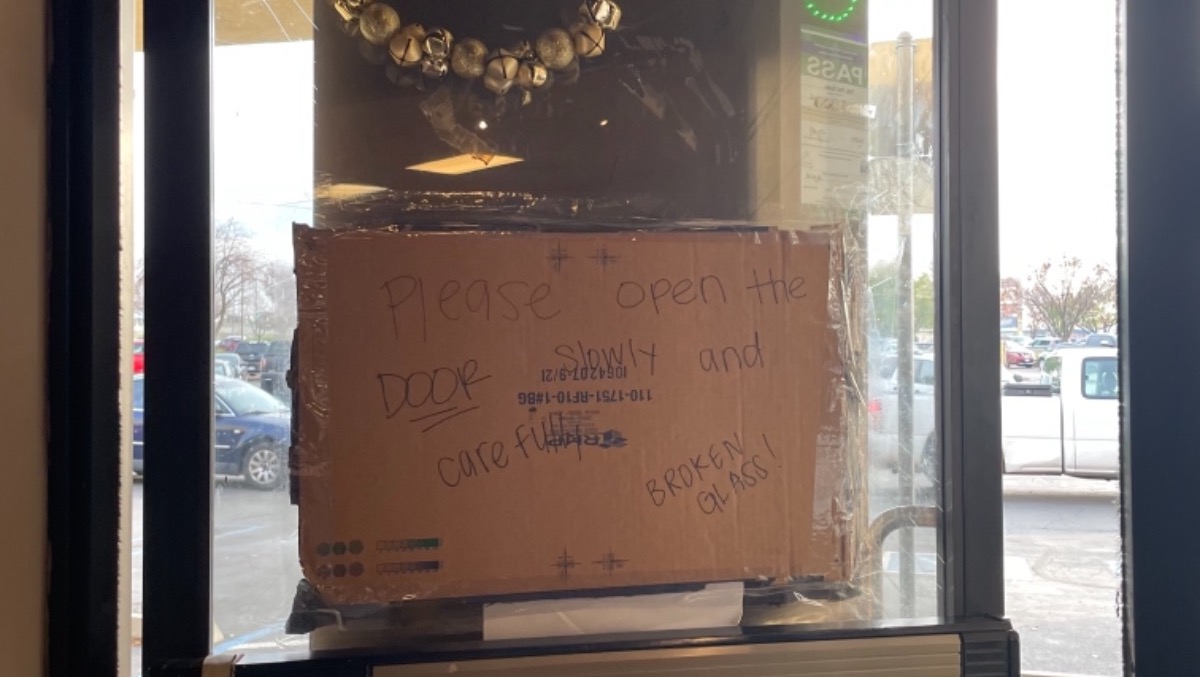 PASS
Please open the
DOOR slowly and
1064207-9/21
110-1751-RF10-1#BG
carefully
BROKEN
GLASS!